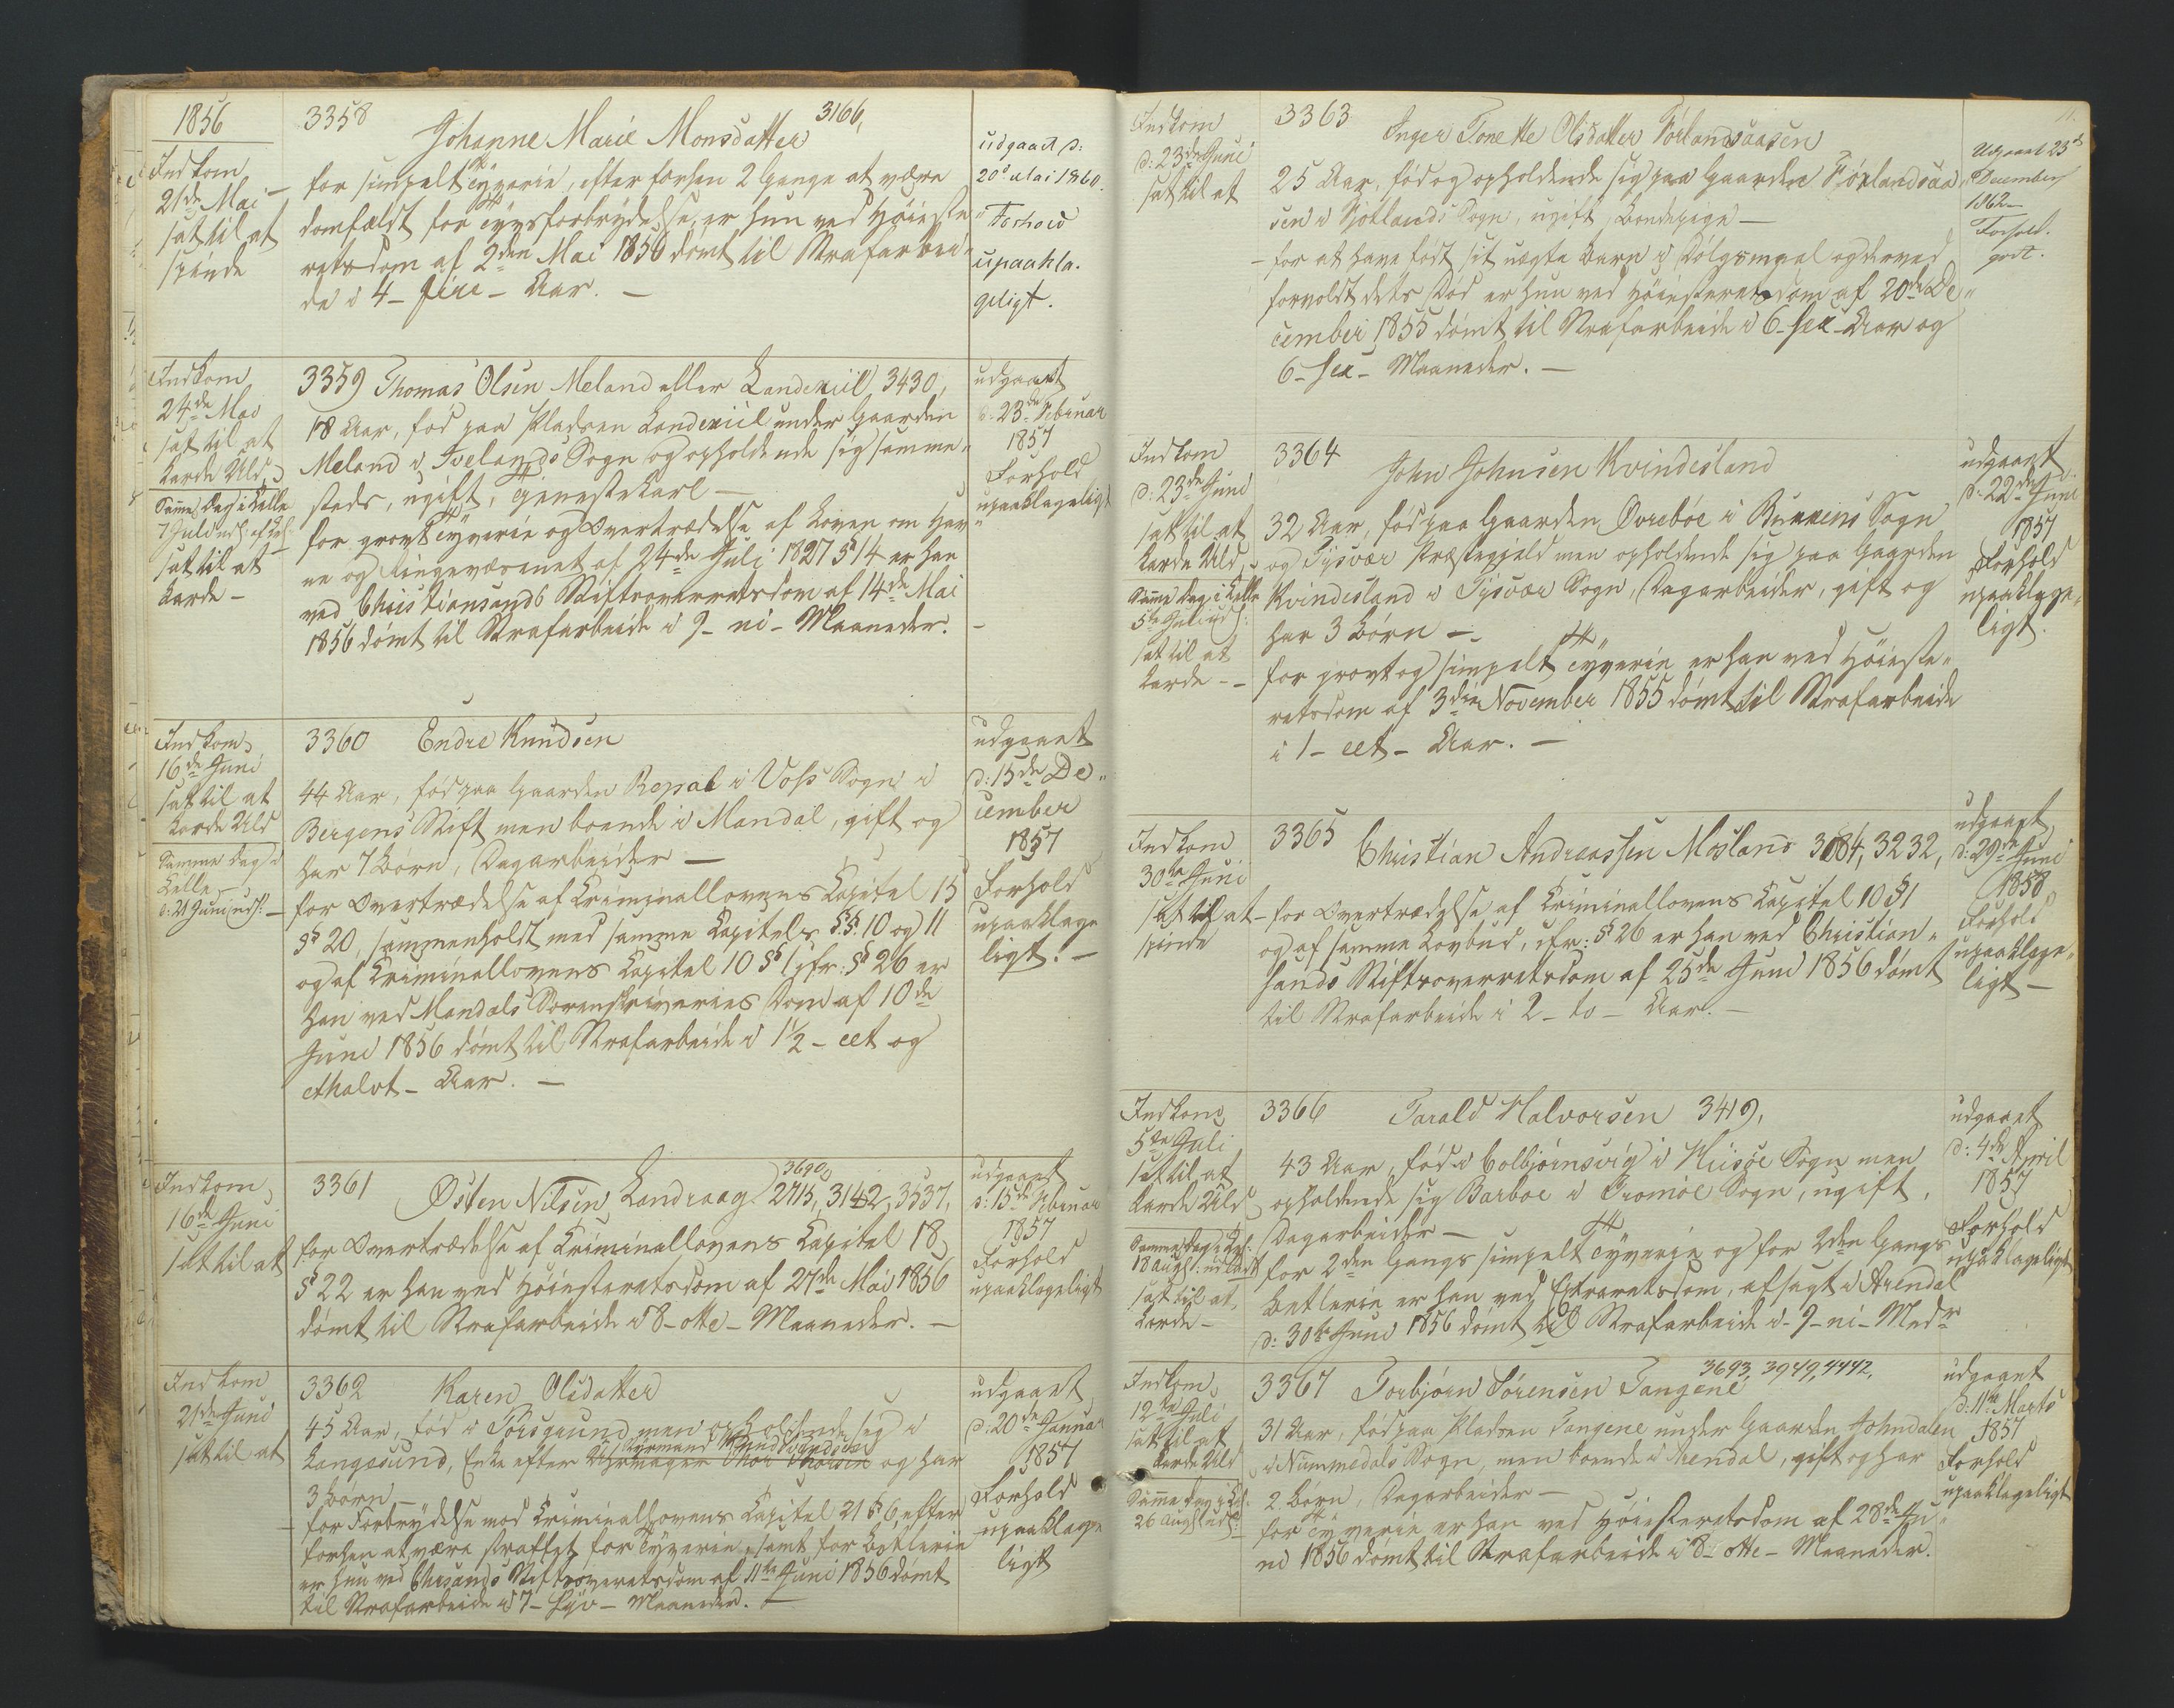 1856
Indkom
21de Mai
sat til at
spinde
3358 3166,
Johanne Marie Monsdatter
for simpelt Tyverie, efter forhen 2 Gange at være
domfældt for Tyvsforbrydelse, er hun ved Høieste
retsdom af 2den Mai 1856 dømt til Strafarbei
de i 4 - fire - Aar. -
udgaaet d:
20de Mai 1860.
Forhold
upaakla.
geligt.
Indkom
24de Mai
sat til at
karde Uld
Samme Dag i Celle
7 Juli uds. af Cel.
sat til at
karde -
3359 Thomas Olsen Meland eller Landeniil 3430,
18 Aar, fød paa Pladsen Landeniil under Gaarden
Meland i Ivelands Sogn og opholdende sig samme"
steds, ugift, Tjenestekarl -
for grovt Tyverie og Overtrædelse af Loven om Hav
ne og Ringevæsenet af 24de Juli 1827 § 14 er han
ved Christiansands Stiftsoverretsdom af 14de Mai
1856 dømt til Strafarbeide i 9 - ni - Maaneder. -
udgaaet
d: 23de Februar
1857
Forhold
upaaklageligt
Indkom
16de Juni
sat til at
karde Uld
Samme Dag i
Celle
d: 21 Juni uds:
3360 Endre Knudsen
44 Aar, fød paa Gaarden Repal i Voss Sogn i
Bergens Stift men boende i Mandal, gift og
har 7 Børn, Dagarbeider -
for Overtrædelse af Criminallovens Capitel 15
§§ 20, sammenholdt med samme Capitels §.§. 10 og 11
og af Criminallovens Capitel 10 § 1 jfr: §§ 26 er
han ved Mandals Sorenskriveries Dom af 10de
Juni 1856 dømt til Strafarbeide i 1 1/2 - eet og
ethalvt - Aar. -
udgaaet
d: 15de De"
cember
1857
Forhold
upaaklage
ligt. -
Indkom
16de Juni
sat til at
3361 3690,
Østen Nilsen Landraag 2715, 3142, 3537,
for Overtrædelse af Criminallovens Capitel 18
§ 22 er han ved Høiesteretsdom af 27de Mai 1856
dømt til Strafarbeide i 8 - otte - Maaneder. -
udgaaet
d: 15de Februar
1857
Forhold
upaaklageligt
Indkom
21de Juni
sat til at
3362 Karen Olsdatter
45 Aar, fød i Porsgrund men opholdende sig i
Langesund, Enke efter Uhrmager Thor Thorsen og har
3 Børn -
for Forbrydelse mod Criminallovens Capitel 21 § 6, efter
forhen at være straffet for Tyverie, samt for Betlerie
er hun ved Chrsands Stiftsoverretsdom af 11te Juni 1856 dømt
til Strafarbeide i 7 - syv - Maaneder. -
udgaaet
d: 20de Januar
1857
Forhold
upaaklage
ligt
11.
Indkom
d: 23de Juni
sat til at
3363
Inger Tonette Olsdatter Førlandsaasen
25 Aar, fød og opholdende sig paa Gaarden Førlandsaa"
sen i Sjotlands Sogn, ugift, Bondepige -
for at have født sit uægte Barn i Dølgsmaal og derved
forvoldt dets Død er hun ved Høiesteretsdom af 20de De"
cember 1855 dømt til Strafarbeide i 6 - sex - Aar og
6 - sex - Maaneder. -
Udgaaet 23de
December
1862
Forhold
godt.
Indkom
d: 23de Juni
sat til at
karde Uld
Samme Dag i Celle
5te Juli uds:
sat til at
karde -
3364
John Johnsen Kvindesland
32 Aar, fød paa Gaarden Øvrebøe i Bukkens Sogn
og Tysvær Præstegjeld men opholdende sig paa Gaarden
Kvindesland i Tysvær Sogn, Dagarbeider, gift og
har 3 Børn -
for grovt og simpelt Tyverie er han ved Høieste"
retsdom af 3die November 1855 dømt til Strafarbeide
i 1 - eet - Aar. -
udgaaet
d: 22de Juni
1857
Forhold
upaaklage"
ligt.
Indkom
30te Juni
sat til at
spinde
3365 Christian Andreassen Mosland 3084, 3232,
for Overtrædelse af Criminallovens Capitel 10 § 1
og af samme Lovbud, cfr: § 26 er han ved Christian"
sands Stiftsoverretsdom af 25de Juni 1856 dømt
til Strafarbeide i 2 - to - Aar. -
udgaaet
d: 29de Juni
1858
Forhold
upaaklage"
ligt -
Indkom
5te Juli
sat til at
karde Uld
Samme Dag i Cel:
18 Aug: udladt
sat til at
karde -
3366 Tarald Halvorsen 3419,
43 Aar, fød i Colbjørnsvig i Hiisøe Sogn men
opholdende sig Barboe i Tromøe Sogn, ugift,
Dagarbeider -
for 2den Gangs simpelt Tyverie og for 2den Gangs
Betlerie er han ved Extraretsdom, afsagt i Arendal
d: 30te Juni 1856 dømt til Strafarbeide i 9 - ni - Mdr
udgaaet
d: 4de April
1857
Forhold
upaaklageligt
Indkom
12te Juli
sat til at
karde Uld
Samme Dag i Cel:
26 Aug: uds:
3693, 3949, 4442,
3367 Torbjørn Sørensen Tangene
31 Aar, fød paa Pladsen Tangene under Gaarden Johndalen
i Nummedals Sogn, men boende i Arendal, gift og har
2 Børn, Dagarbeider -
for Tyverie er han ved Høiesteretsdom af 28de Ju"
ni 1856 dømt til Strafarbeide i 8 - otte - Maaneder.
udgaaet
d: 11te Marts
1857
Forhold
upaaklageligt